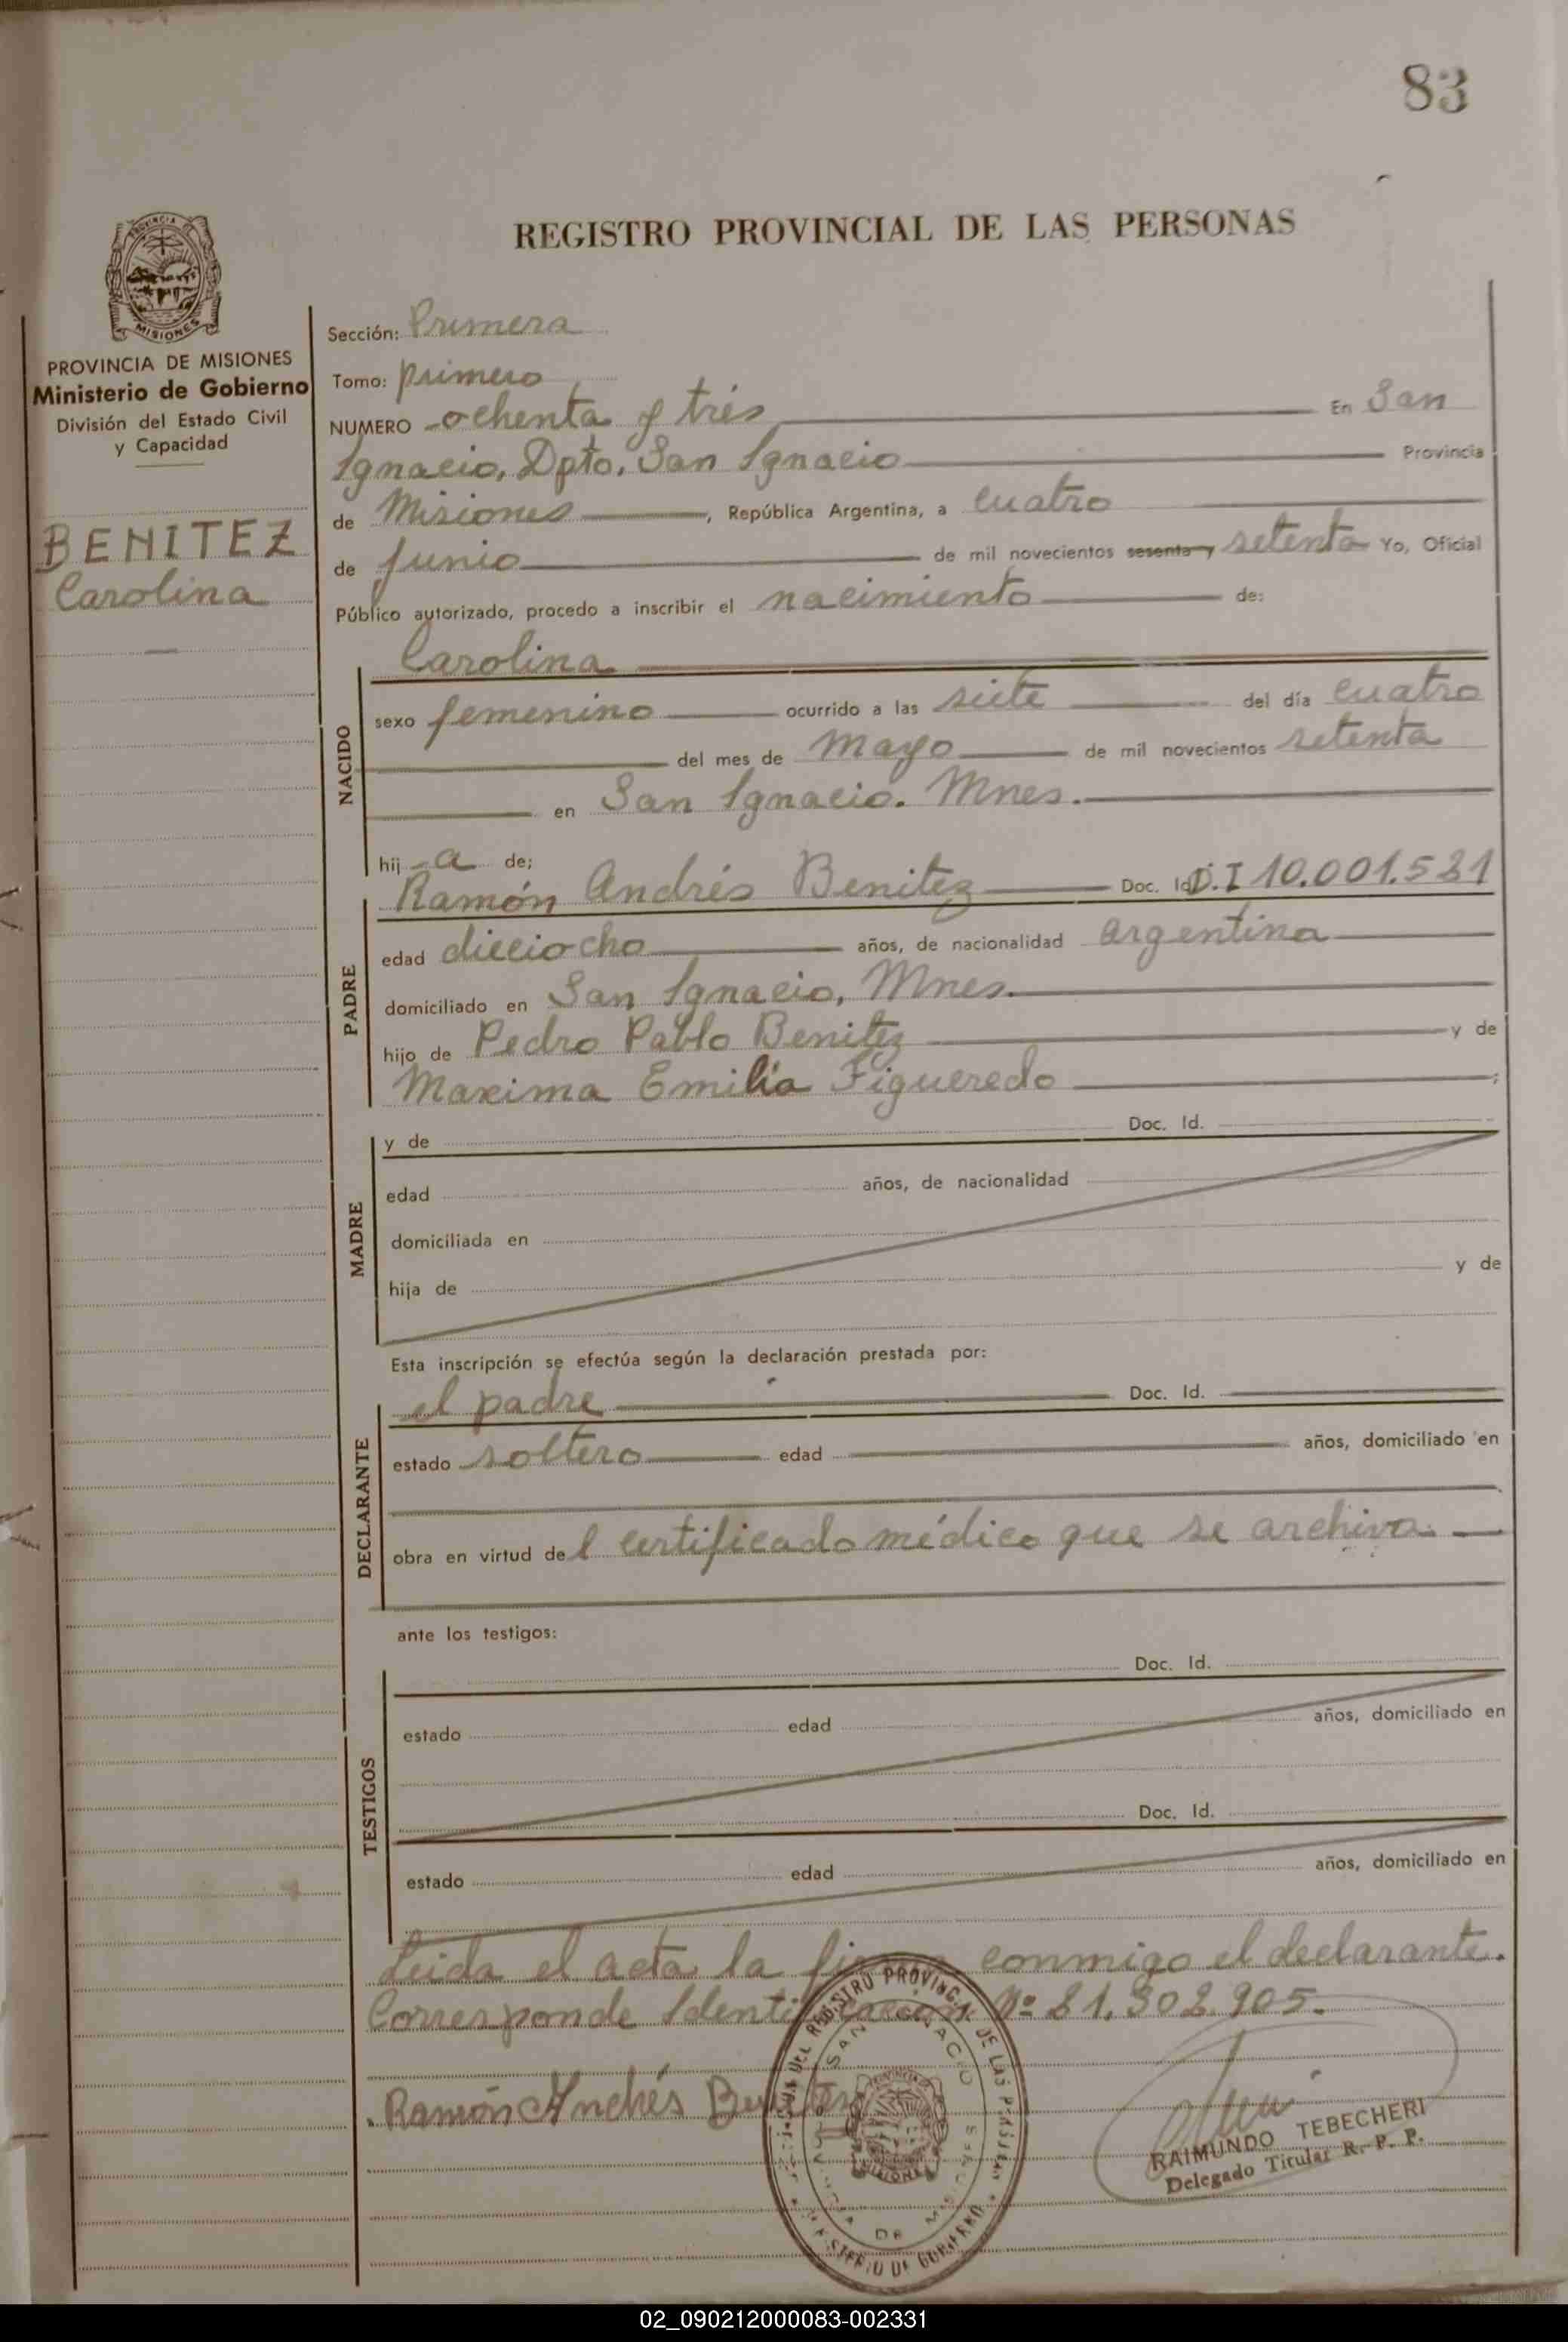 83
REGISTRO PROVINCIAL DE LAS PERSONAS
PROVINCIA
MISIONES
PROVINCIA DE MISIONES
Ministerio de Gobierno
División del Estado Civil
y Capacidad
BENITEZ
Carolina
Sección: Primera
Tomo: primero
NUMERO ochenta y tres En San
Ignacio, Dpto. San Ignacio Provincia
de Misiones, República Argentina, a cuatro
de junio de mil novecientos sesenta y setenta Yo, Oficial
Público autorizado, procedo a inscribir el nacimiento de:
Carolina
NACIDO
sexo femenino ocurrido a las siete del día cuatro
del mes de mayo de mil novecientos setenta
en San Ignacio. Mnes.
hij a de;
PADRE
Ramón Andrés Benitez Doc. Id D.I 10.001.521
edad dieciocho años, de nacionalidad argentina
domiciliado en San Ignacio, Mnes.
hijo de Pedro Pablo Benitez y de
Maxima Emilia Figueredo ;
MADRE
y de Doc. Id.
edad años, de nacionalidad
domiciliada en
hija de y de
Esta inscripción se efectúa según la declaración prestada por:
DECLARANTE
el padre Doc. Id.
estado soltero edad años, domiciliado en
obra en virtud del certificado médico que se archiva.
ante los testigos:
TESTIGOS
Doc. Id.
estado edad años, domiciliado en
Doc. Id.
estado edad años, domiciliado en
Leida el acta la conmigo el declarante.
Corresponde Identificación Nº 21.302.905.
Ramón Andrés Benitez
RAIMUNDO TEBECHERI
Delegado Titular R. P. P.
02_090212000083-002331